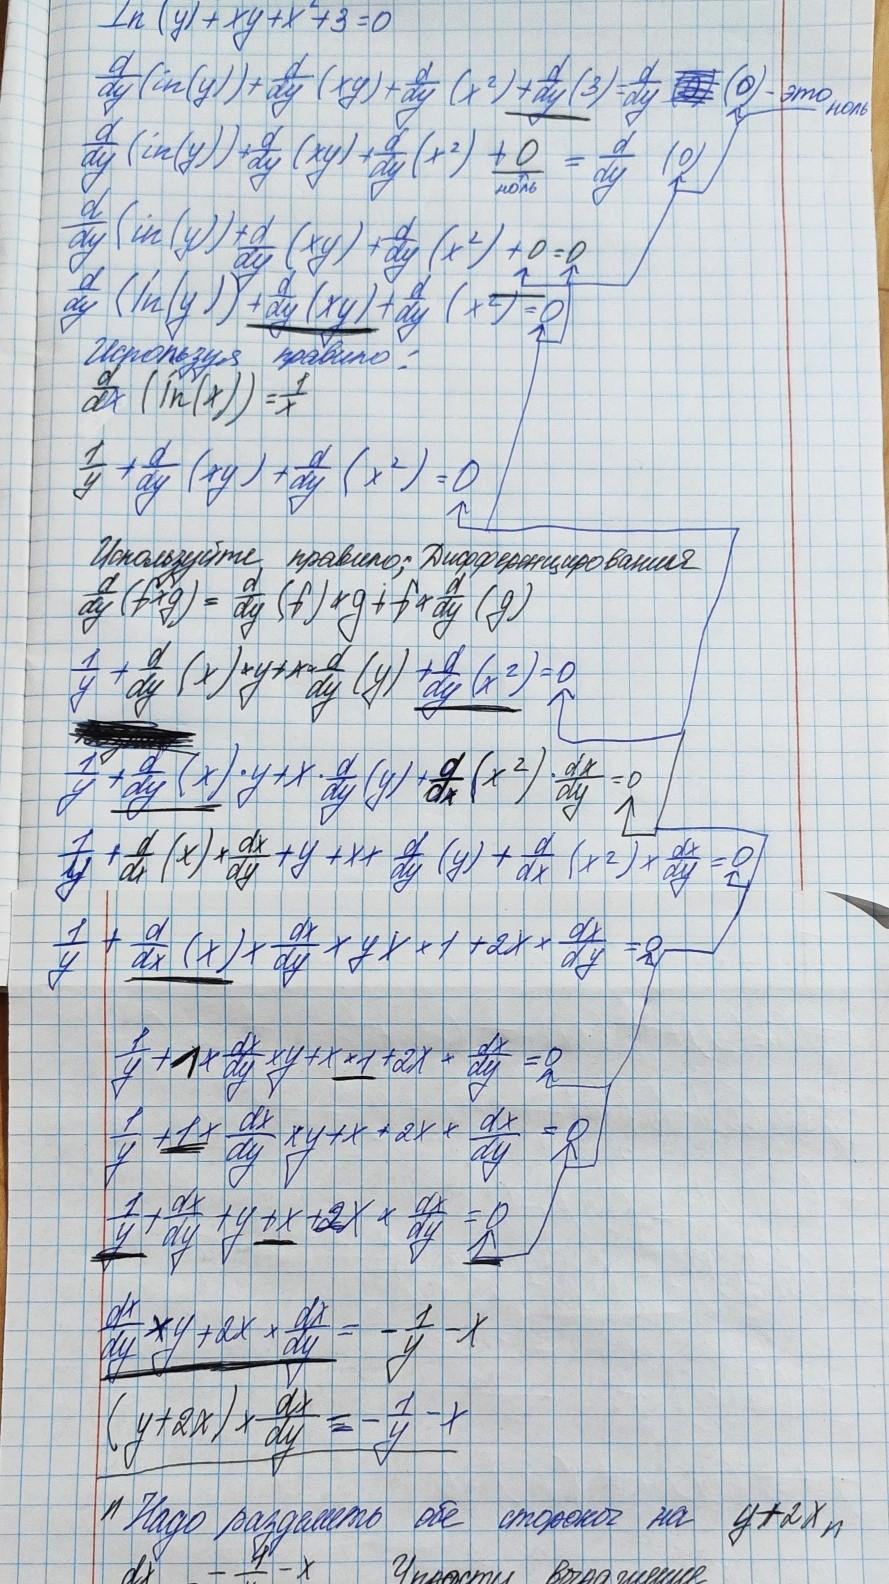 ln(y)+xy+x²+3=0
d/dy(ln(y))+d/dy(xy)+d/dy(x²)+d/dy(3)=d/dy (0) - это ноль
d/dy(ln(y))+d/dy(xy)+d/dy(x²)+0=d/dy (0)
ноль
d/dy(ln(y))+d/dy(xy)+d/dy(x²)+0=0
d/dy(ln(y))+d/dy(xy)+d/dy(x²)=0
Используя правило:
d/dx(ln(x))=1/x
1/y+d/dy(xy)+d/dy(x²)=0
Используйте правило: Дифференцирования
d/dy(f×g)=d/dy(f)×g+f×d/dy(g)
1/y+d/dy(x)×y+x×d/dy(y)+d/dy(x²)=0
1/y+d/dy(x)·y+x·d/dy(y)+d/dx(x²)·dx/dy=0
1/y+d/dx(x)×dx/dy+y+x×d/dy(y)+d/dx(x²)×dx/dy=0
1/y+d/dx(x)×dx/dy×yx×1+2x×dx/dy=0
1/y+1×dx/dy×y+x×1+2x×dx/dy=0
1/y+1×dx/dy×y+x+2x×dx/dy=0
1/y+dx/dy+y+x+2x×dx/dy=0
dx/dy×y+2x×dx/dy=-1/y-x
(y+2x)×dx/dy=-1/y-x
"Надо разделить обе стороны на y+2x"